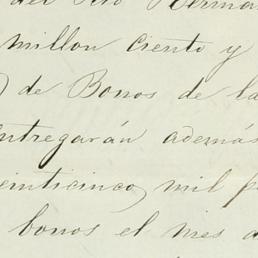 del Rio Berm
millon ciento y
) de Bonos de la
ntregarán además
einticinco mil p
bonos el mes d